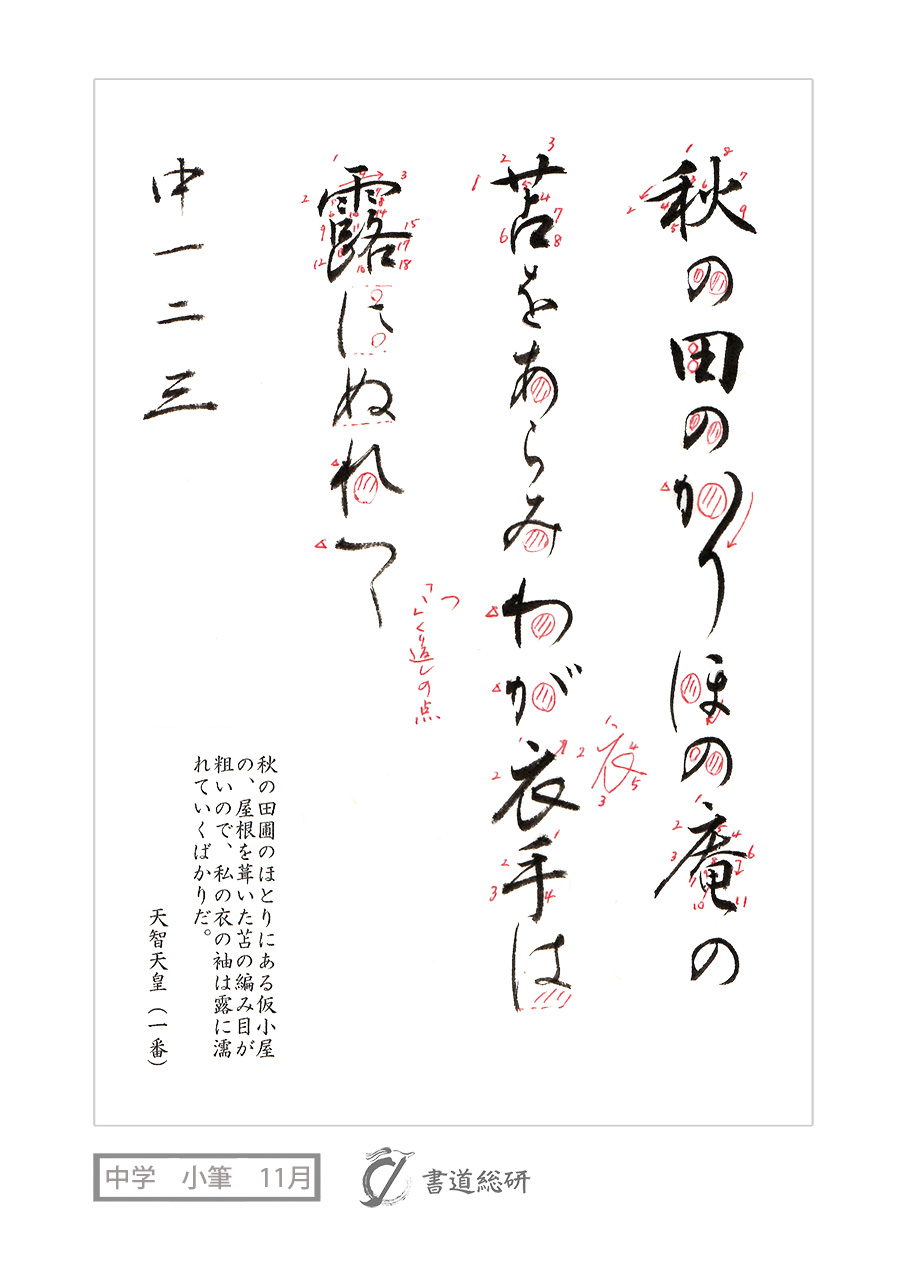 秋の田のかりほの庵の
苫をあらみわが衣手は
衣
露にぬれつゝ
つ
「ゝ」くり返しの点
中一二三
秋の田圃のほとりにある仮小屋
の、屋根を葺いた苫の編み目が
粗いので、私の衣の袖は露に濡
れていくばかりだ。
天智天皇（一番）
中学　小筆　11月
書道総研